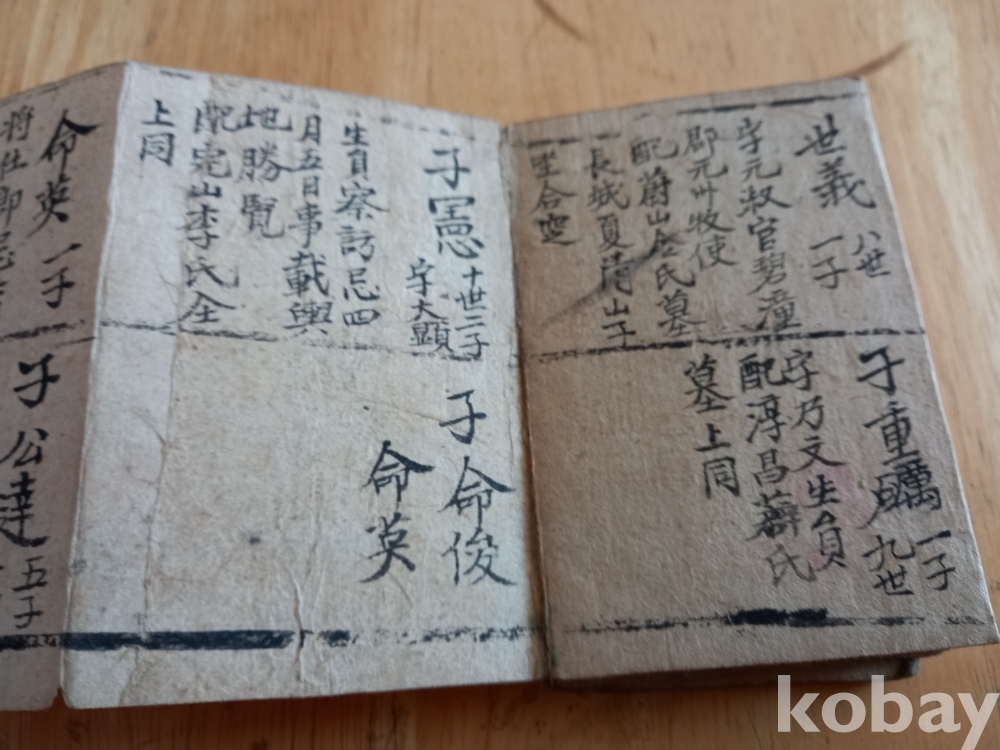 世義
八世
一子
字元叔官碧潼
郡元州牧使
配蔚山金氏墓
長城夏淸山子
坐合窆
子重礪
一子
九世
字乃文生員
配淳昌薛氏
墓上同
子憲
十世二子
字大顯
生員察訪忌四
月五日事載輿
地勝覧
配完山李氏仝
上同
子命俊
命英
命英
一子
將仕郎忌
子公達
五子
kobay